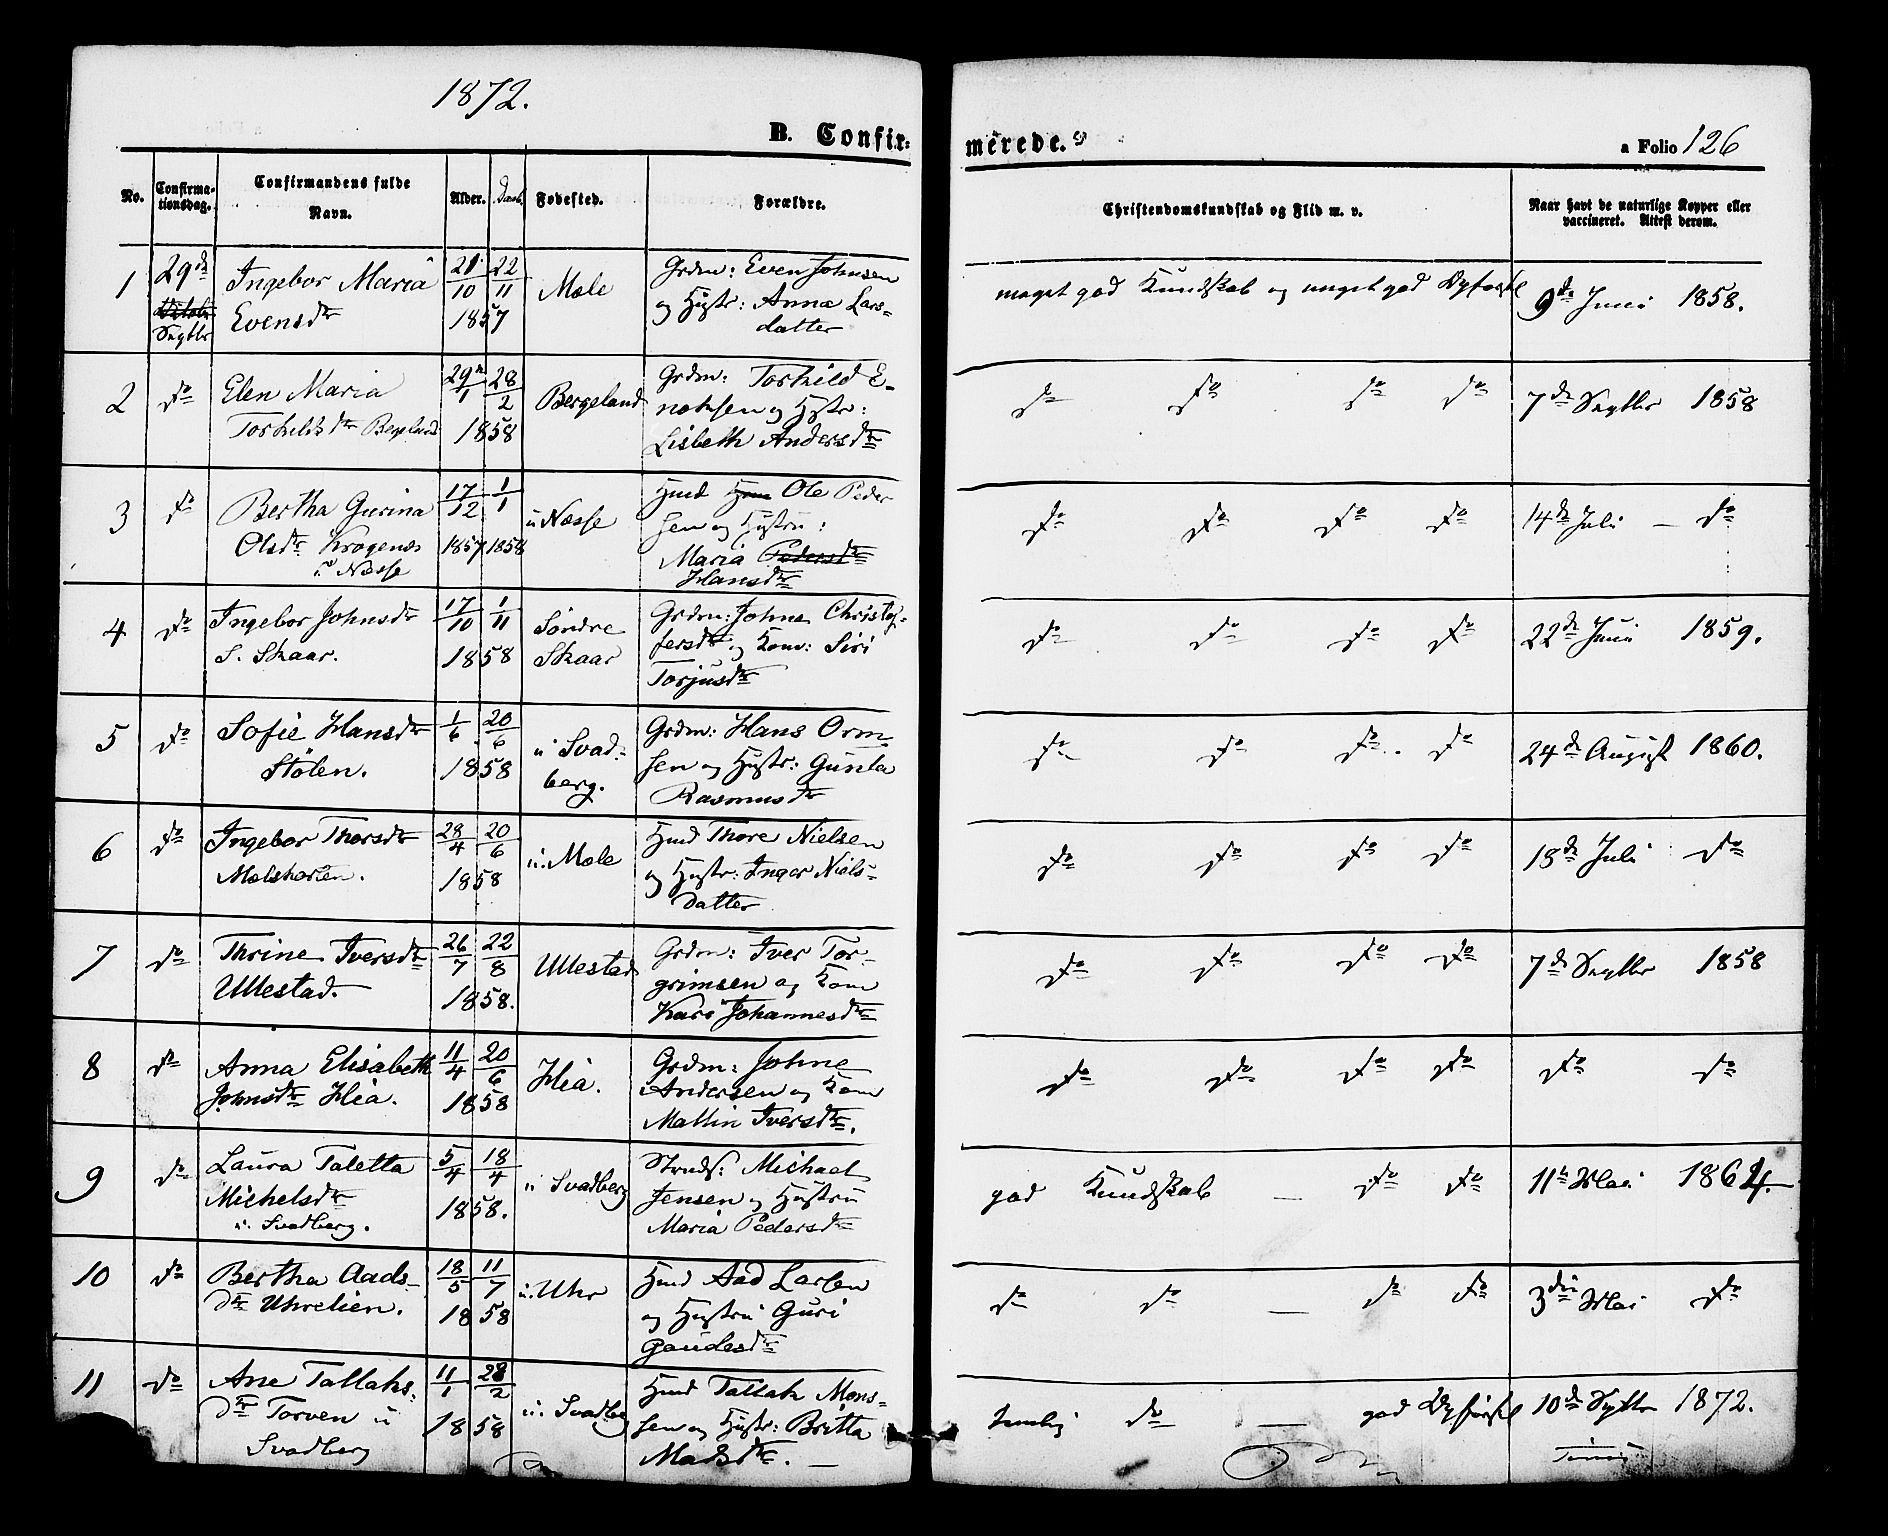 1872.
B. Confir=
merede.
a Folio 126
No.
Confirma-
tionsdag.
Confirmandens fulde
Navn.
Alder.
Daab.
Fødested.
Forældre.
Christendomskundskab og Flid m. v.
Naar havt de naturlige Kopper eller
vaccineret. Attest derom.
1 29de Septbr
Ingebor Maria
Evensdtr
21/10 22/11
1857
Mæle
Grdm: Even Johnsen
og Hustr: Anna Lars-
datter
meget god Kundskab og meget god Opførsel
9de Juni 1858.
2 do
Elen Maria
Torkildsdtr Bergeland
29/1 28/2
1858
Bergeland
Grdm: Torkild E-
noksen og Hustr:
Lisbeth Andersdtr
do do do do
7de Septbr 1858
3 do
Bertha Gurina
Olsdtr Krogenæs
u Næsse
17/12 1/1
1857 1858
u Næsse
Hmd Ole Peder
sen og Hustru:
Maria Pedersdtr
Hansdtr
do do do do
14de Juli — do
4 do
Ingebor Johnsdtr
S. Skaar.
17/10 1/11
1858
Søndre
Skaar
Grdm: Johne Christof-
fersdtr og Kone: Siri
Torjusdtr
do do do do
22de Juni 1859.
5 do
Sofie Hansdtr
Stølen.
1/6 20/6
1858
u Svad-
berg.
Grdm: Hans Orm
sen og Hustr: Gunla
Rasmusdtr
do do do do
24de August 1860.
6 do
Ingebor Thorsdtr
28/4 20/6
1858
u. Mæle
Hmd Thore Nielsen
og Hustr: Inger Niels-
datter
do do do do
18de Juli do
7 do
Thrine Iversdtr
Ullestad.
26/7 22/8
1858.
Ullestad
Grdm: Iver Tor-
grimsen og Kone
Kari Johannesdtr
do do do do
7de Septbr 1858
8 do
Anna Elisabeth
Johnsdtr Hia.
11/4 20/6
1858
Hia.
Grdm: Johne
Andersen og Kone
Mallin Iversdtr.
do do do do
do do
9 do
Laura Taletta
Michelsdtr
u. Svadberg.
5/4 18/4
1858.
u Svadberg
Strnds: Michael
Jensen og Hustru
Maria Pedersdtr
god Kundskab — do do
11te Mai 1864.
10 do
Bertha Aads-
dtr Uhrelien.
18/5 11/7
1858
u. Uhr
Hmd Aad Larsen
og Hustru Guri
Gaudesdtr
do do — do do
3die Mai do
11 do
Ane Tallaks-
dtr Torven u
Svadberg
11/1 28/2
1858
u. Svadberg
Hmd Tallak Mons-
sen og Hustr: Britta
Madsdtr. —
temlig do — god Opførsel
10de Septbr 1872.